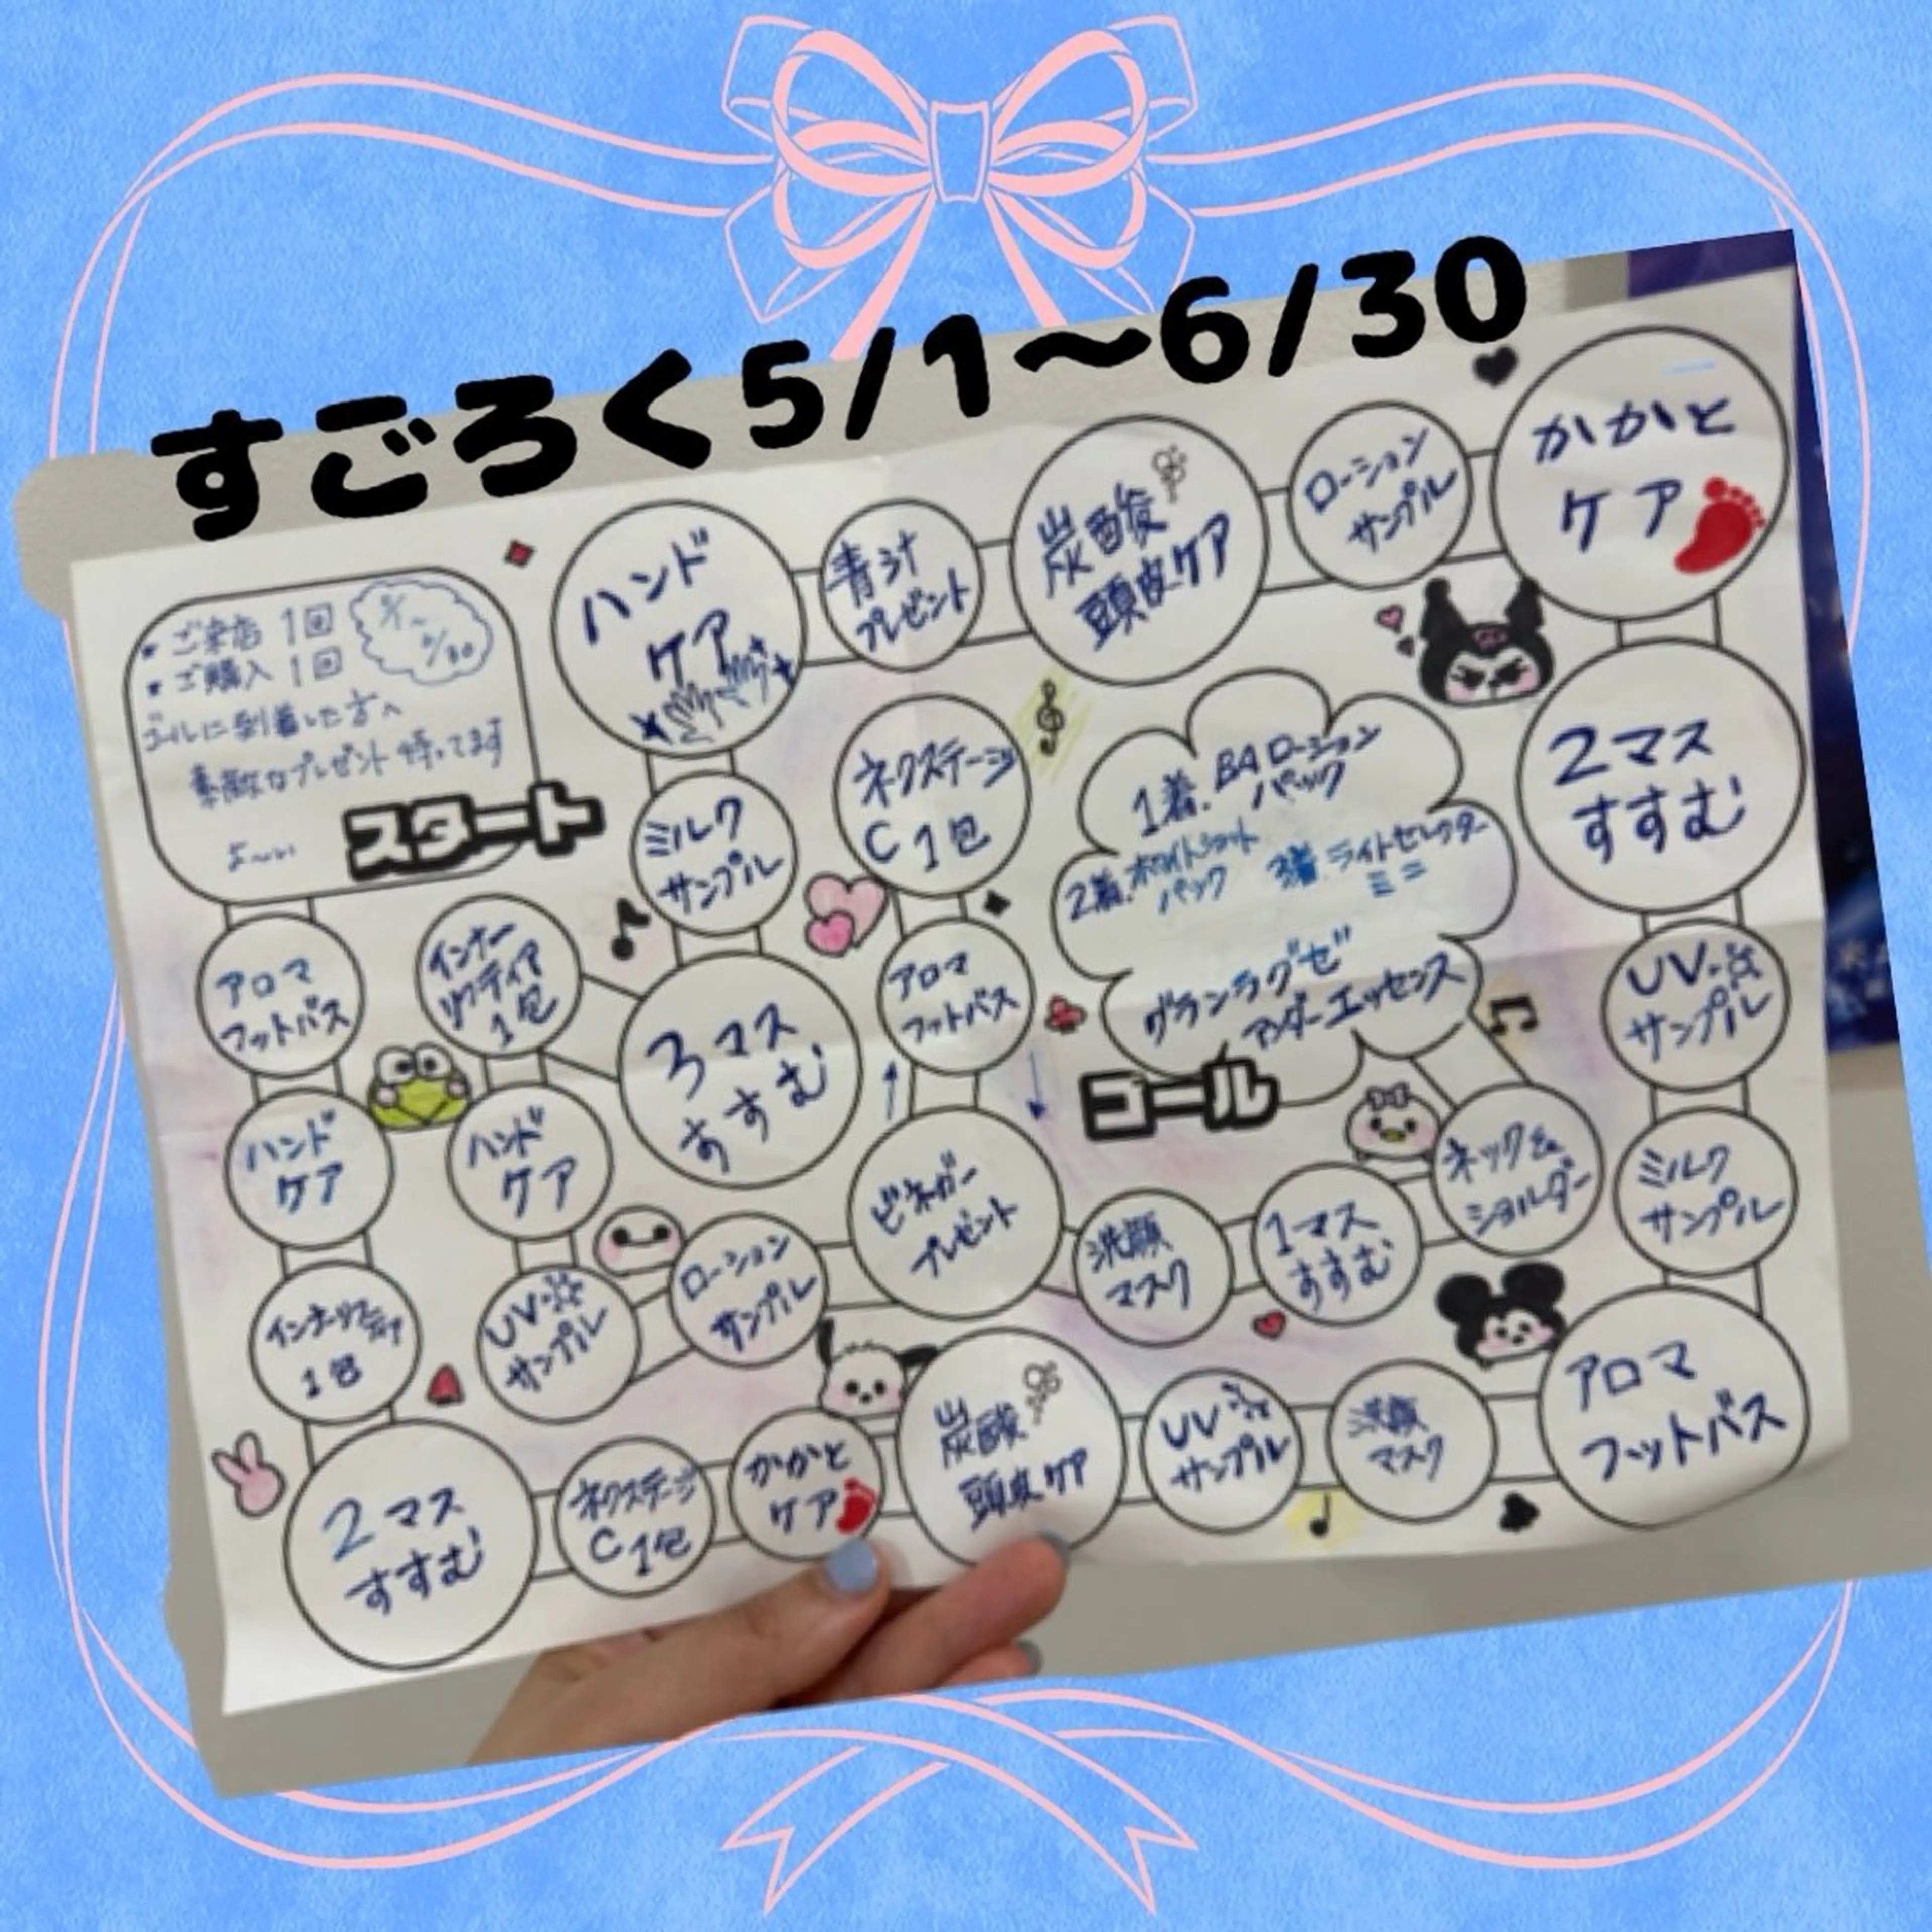 すごろく5/1〜6/30
★ ご来店 1回
★ ご購入 1回
5/1〜
6/30
ゴールに到着した方へ
素敵なプレゼント待ってます
よ〜い
スタート
アロマ
フットバス
ハンド
ケア
インナーリフティア
1包
2マス
すすむ
ネクステージ
C 1包
かかと
ケア
炭酸
頭皮ケア
UV
サンプル
洗顔
マスク
アロマ
フットバス
ミルク
サンプル
UV
サンプル
2マス
すすむ
かかと
ケア
ローション
サンプル
炭酸
頭皮ケア
青汁
プレゼント
ハンド
ケア
ミルク
サンプル
3マス
すすむ
インナー
リフティア
1包
ハンド
ケア
UV
サンプル
ローション
サンプル
ビネガー
プレゼント
アロマ
フットバス
ネクステージ
C 1包
洗顔
マスク
1マス
すすむ
ネック&
ショルダー
1着.BAローション
パック
2着.ホワイトショット
パック
3着.ライトセレクター
ミニ
グランラグゼ
アンダーエッセンス
ゴール